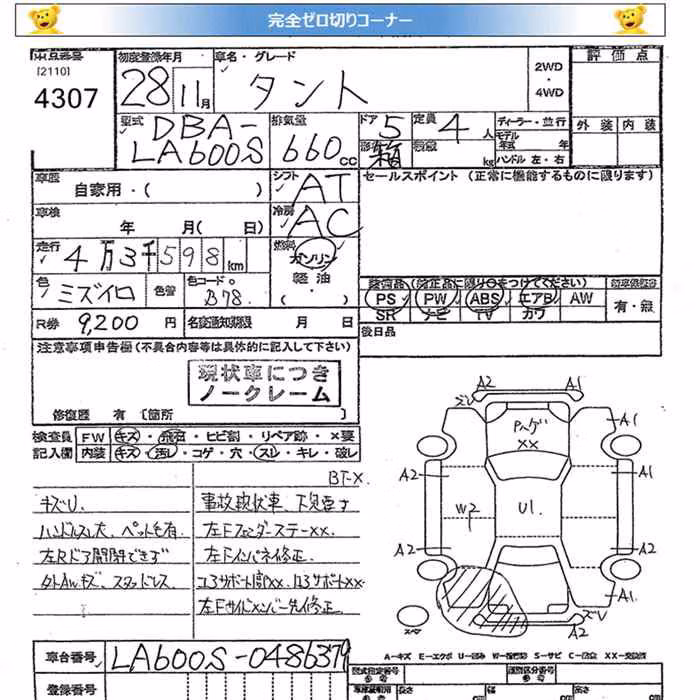 完全ゼロ切りコーナー
出品番号
[2110]
4307
初度登録年月
28 11月
車名・グレード
タント
2WD
・
4WD
評価点
外装 内装
型式
DBA-
LA600S
排気量
660cc
ドア 5
形状 箱
定員 4人
kg
ディーラー・並行
モデル
年式 年
ハンドル 左・右
車歴
自家用・( )
シフト
AT
セールスポイント (正常に機能するものに限ります)
車検
年 月( 日)
冷房
AC
走行
4万3千598km
燃料
ガソリン
軽油・
( )
色
ミズイロ
色替
色コードNo
B78
R券 9,200円
名変通知期限 月 日
PS PW ABS エアB AW
SR ナビ TV カワ
有・無
後日品
注意事項申告欄(不具合内容等は具体的に記入して下さい)
現状車につき
ノークレーム
修復歴 有 [箇所
検査員 FW キズ・飛石・ヒビ割・リペア跡・×要
記入欄 内装 キズ・汚レ・コゲ・穴・スレ・キレ・破レ
BT-X
キズU.
事故現状車、下見要す
左FフェンダーステーXX.
左Rドア開閉できず
左Fインパネ修正.
外AWキズ、スタッドレス
左Fサイドメンバー先修正
A2 A1
ズレ
Pハゲ
XX
A1
A2 A1
W2 U1
A2 A2
A1
ズレ
A2
スペア
A-キズ E-エクボ U-凹み W-補修跡 S-サビ C-腐食 XX-交換済
車台番号 LA600S-0486379
登録番号
型式指定番号 類別区分番号
長さ cm 幅 cm 高さ cm